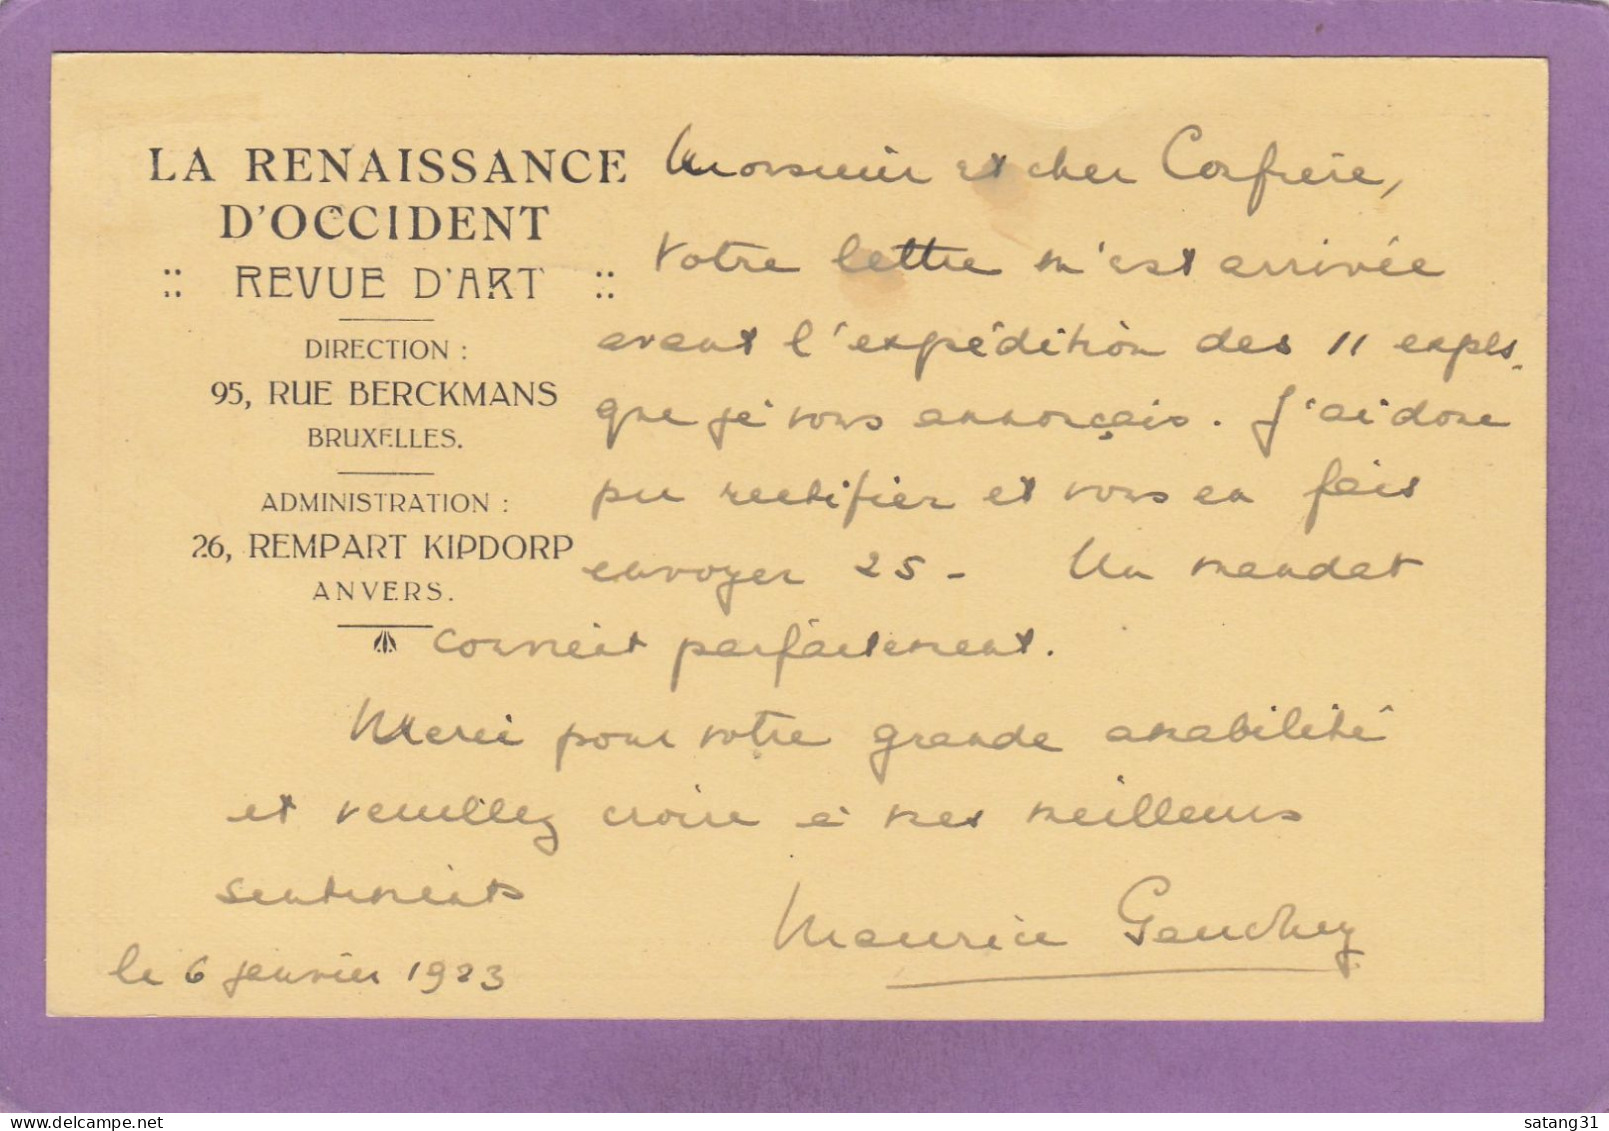 LA RENAISSANCE
D'OCCIDENT
:: REVUE D'ART ::
DIRECTION :
95, RUE BERCKMANS
BRUXELLES.
ADMINISTRATION :
26, REMPART KIPDORP
ANVERS.
Monsieur et cher Confrère,
Votre lettre m'est arrivée
avant l'expédition des 11 expls.
que je vous annonçais. J'ai donc
pu rectifier et vous en fais
envoyer 25 - Un mandat
convient parfaitement.
Merci pour votre grande amabilité
et veuillez croire à mes meilleurs
sentiments
Maurice Gauchez
le 6 janvier 1923
satang31